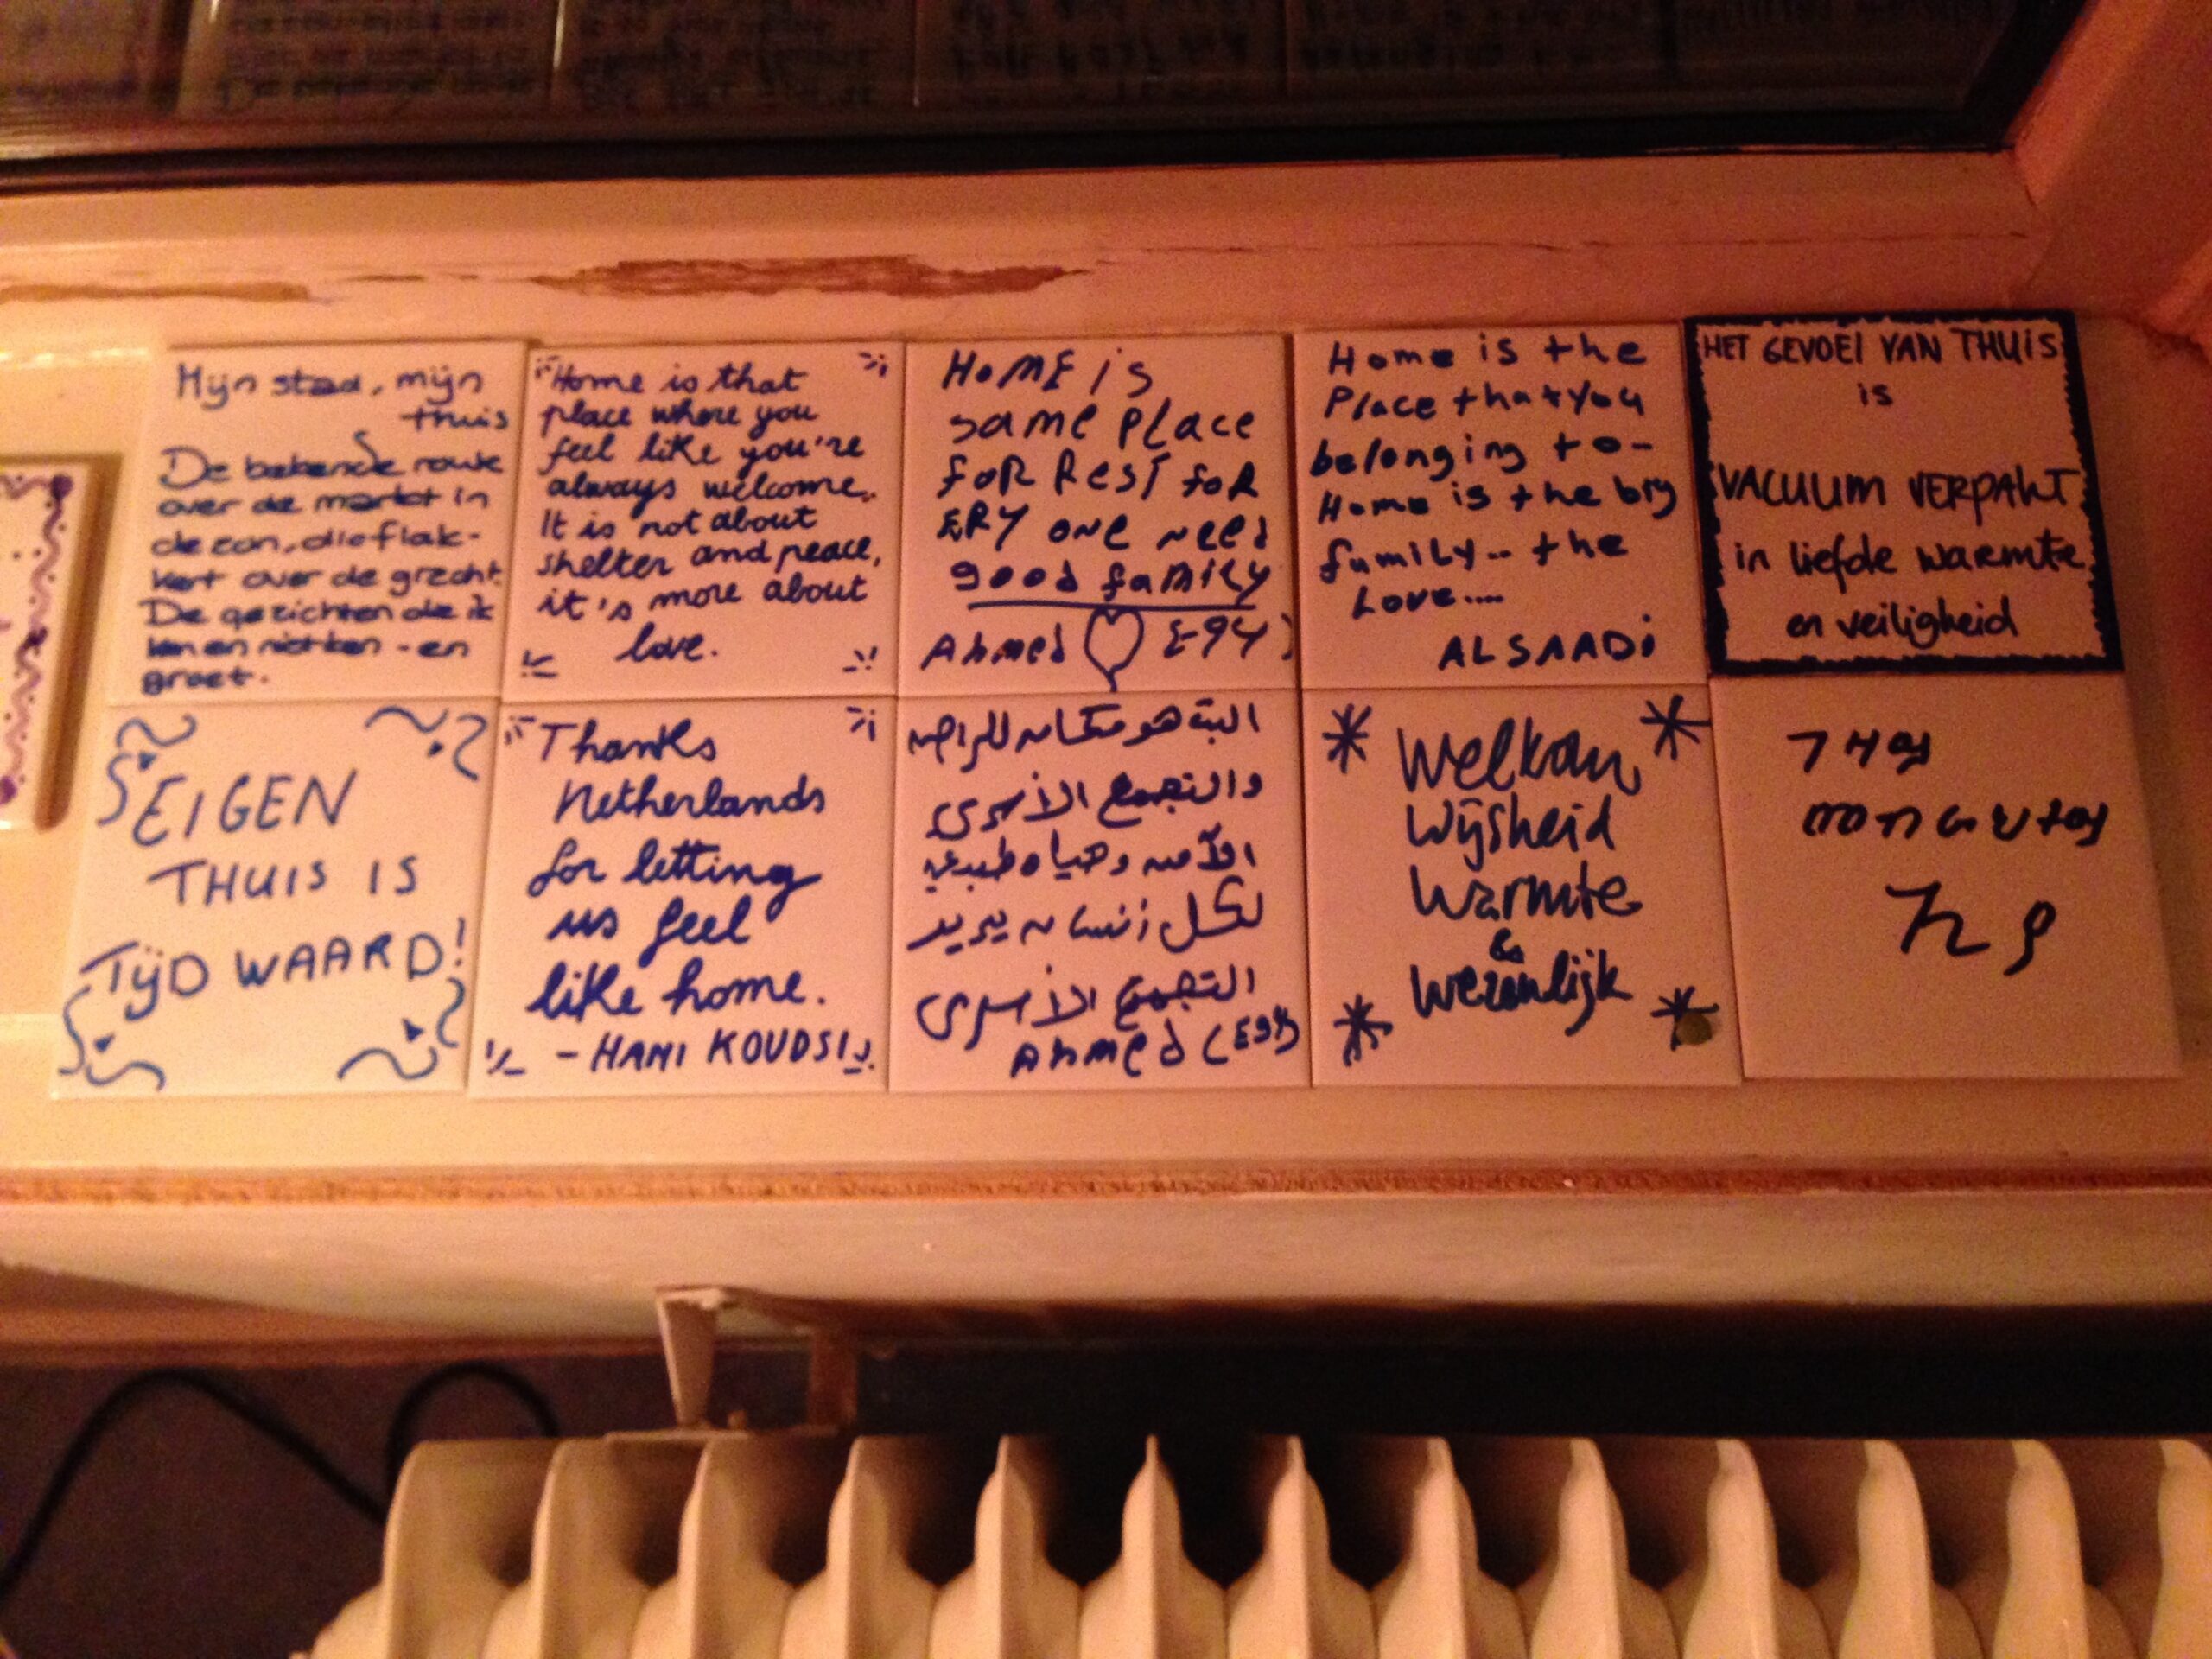 Mijn stad, mijn
thuis
De bekende route
over de markt in
de zon, die flak-
kert over de gracht.
De gezichten die ik
ken en niet ken - en
groet.
"Home is that
place where you
feel like you're
always welcome.
It is not about
shelter and peace,
it's more about
love.
HOME is
same place
FOR Rest foR
ERY one need
good family
Ahmed
Home is the
Place that you
belonging to-
Home is the big
family.. the
Love....
ALSAADi
HET GEVOEl VAN THUiS
is
VACUUM VERPAKT
in liefde warmte
en veiligheid
EIGEN
THUIS IS
TIJD WAARD!
Thanks
Netherlands
for letting
us feel
like home.
- HANI KOUDSI
البة هو مكان للراحه
والتجمع الأسري
الآمن وحياه طبيعيه
لكل إنسان يريد
التجمع الأسري
Ahmed (E94)
Welkom
Wijsheid
Warmte
&
Wezenlijk